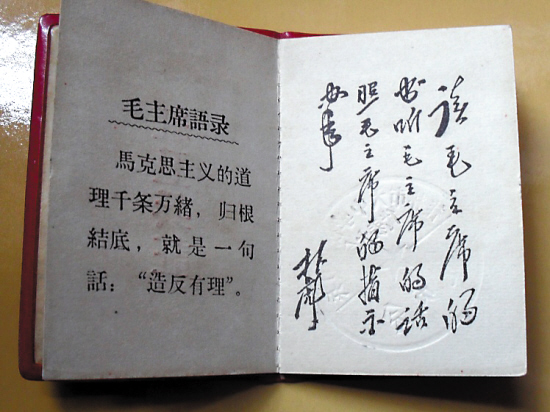 毛主席語录
馬克思主义的道
理千条万緒，归根
結底，就是一句
話：“造反有理”。
读毛主席的
书听毛主席的话
照毛主席的指示
办事
林彪